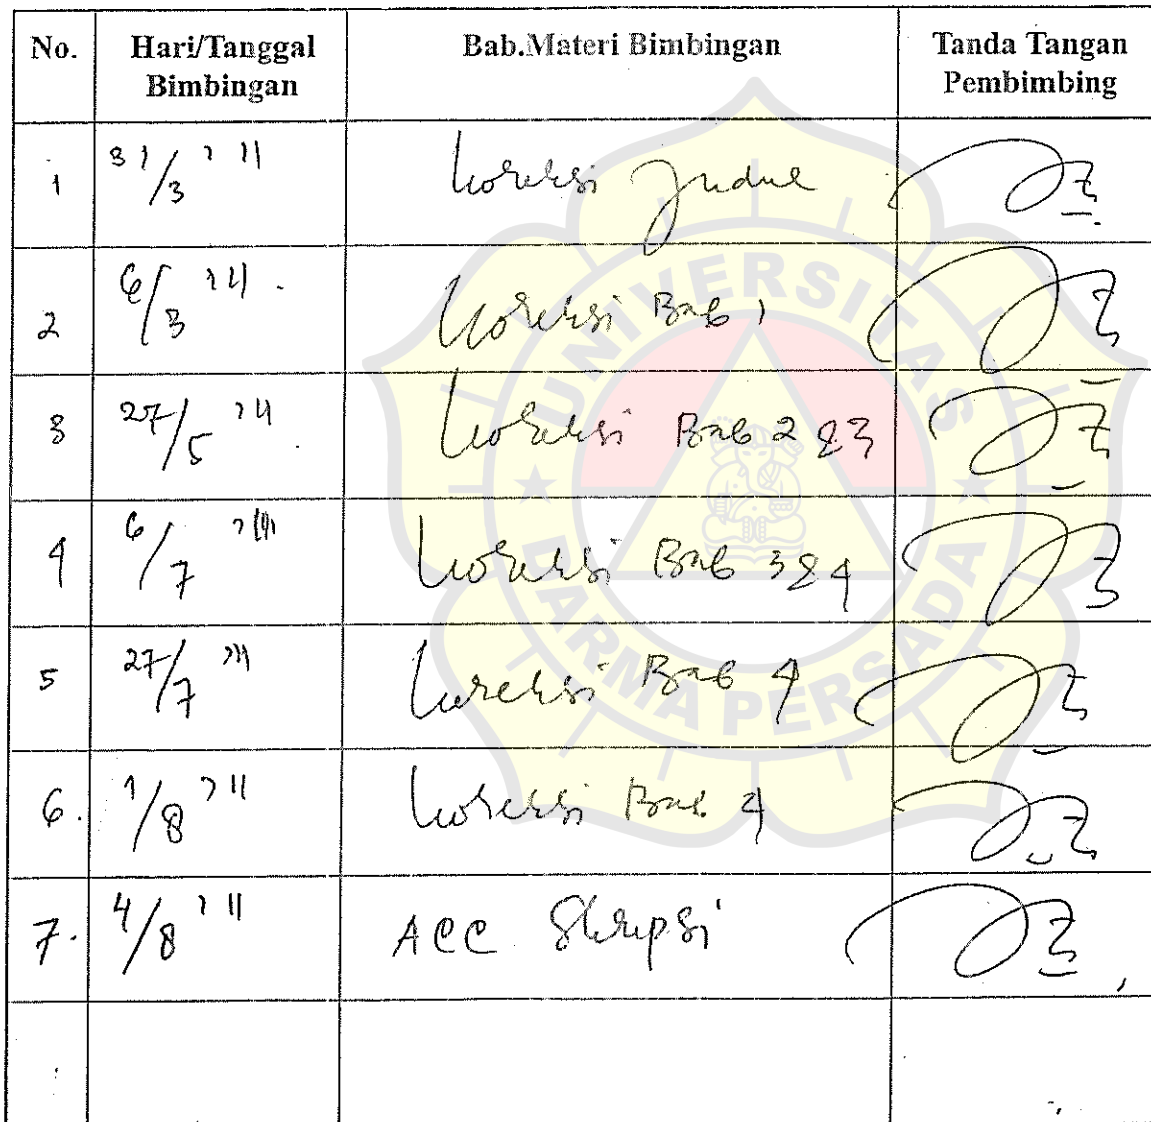 No. Hari/Tanggal Bimbingan Bab.Materi Bimbingan Tanda Tangan Pembimbing
1 31/3 '11 koreksi Judul
2 6/3 '11 . koreksi Bab 1
3 27/5 '11 . koreksi Bab 2 & 3
4 6/7 '11 koreksi Bab 3 & 4
5 27/7 '11 koreksi Bab 4
6. 1/8 '11 koreksi Bab 4
7. 4/8 '11 ACC Skripsi
UNIVERSITAS
DARMA PERSADA